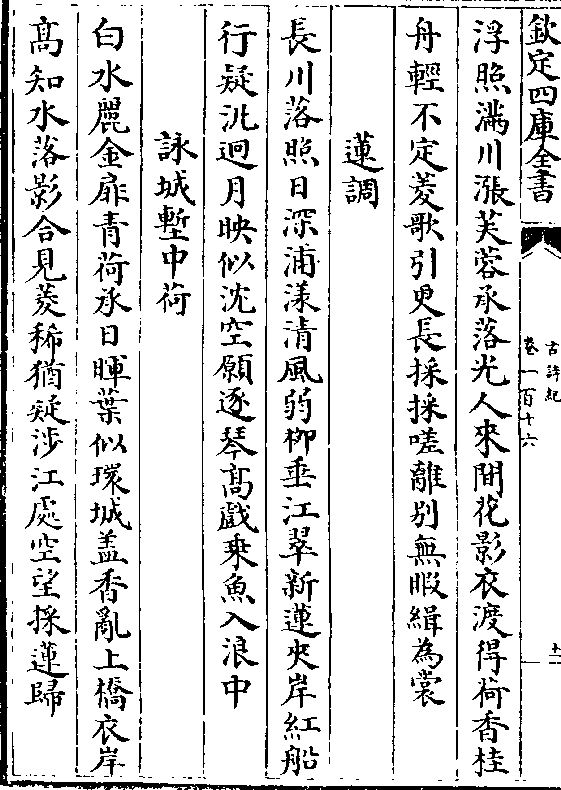 欽定四庫全書
古詩紀
卷一百十六
十二
浮照滿川漲芙蓉承落光人來間花影衣渡得荷香桂
舟輕不定菱歌引更長採採嗟離別無暇緝為裳
蓮調
長川落照日深浦漾清風弱柳垂江翠新蓮夾岸紅船
行疑泚迥月映似沈空願逐琴髙戲乗魚入浪中
詠城塹中荷
白水麗金扉青荷承日暉葉似環城盖香亂上橋衣岸
髙知水落影合見菱稀猶疑涉江處空望採蓮歸